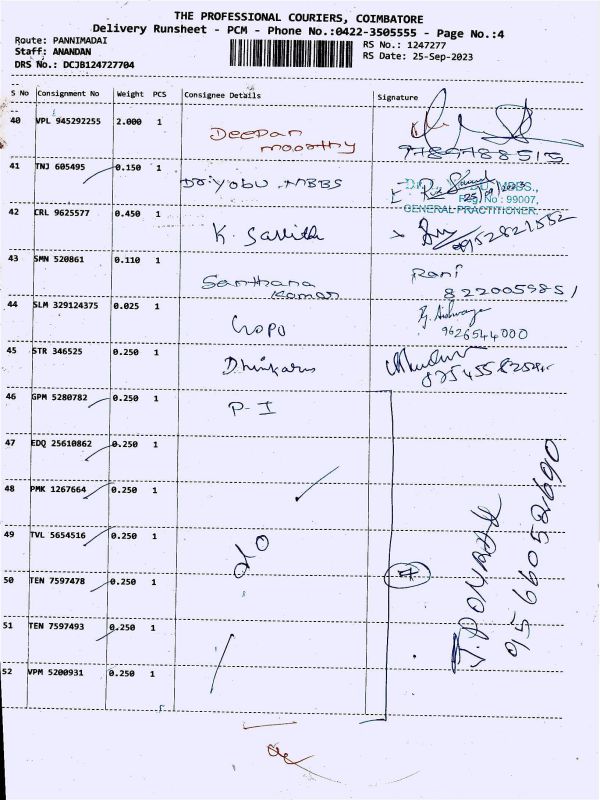 THE PROFESSIONAL COURIERS, COIMBATORE
Delivery Runsheet - PCM - Phone No.:0422-3505555 - Page No.:4
Route: PANNIMADAI
Staff: ANANDAN
DRS No.: DCJB124727704
RS No.: 1247277
RS Date: 25-Sep-2023
S No Consignment No Weight PCS Consignee Details Signature
40 VPL 945292255 2.000 1 Deepan
moorthy
9789788515
41 TNJ 605495 0.150 1 Dr.Yobu.MBBS
MBBS.,
Reg.No : 99007,
GENERAL PRACTITIONER.
42 CRL 9625577 0.450 1 K.
43 SMN 520861 0.110 1 Santhana
Kumar
Rani
8220059851
44 SLM 329124375 0.025 1 Gopu
9626544000
45 STR 346525 0.250 1
46 GPM 5280782 0.250 1 P-I
47 EDQ 25610862 0.250 1
48 PMK 1267664 0.250 1
49 TVL 5654516 0.250 1
do
50 TEN 7597478 0.250 1
7
51 TEN 7597493 0.250 1
52 VPM 5200931 0.250 1
9566052690